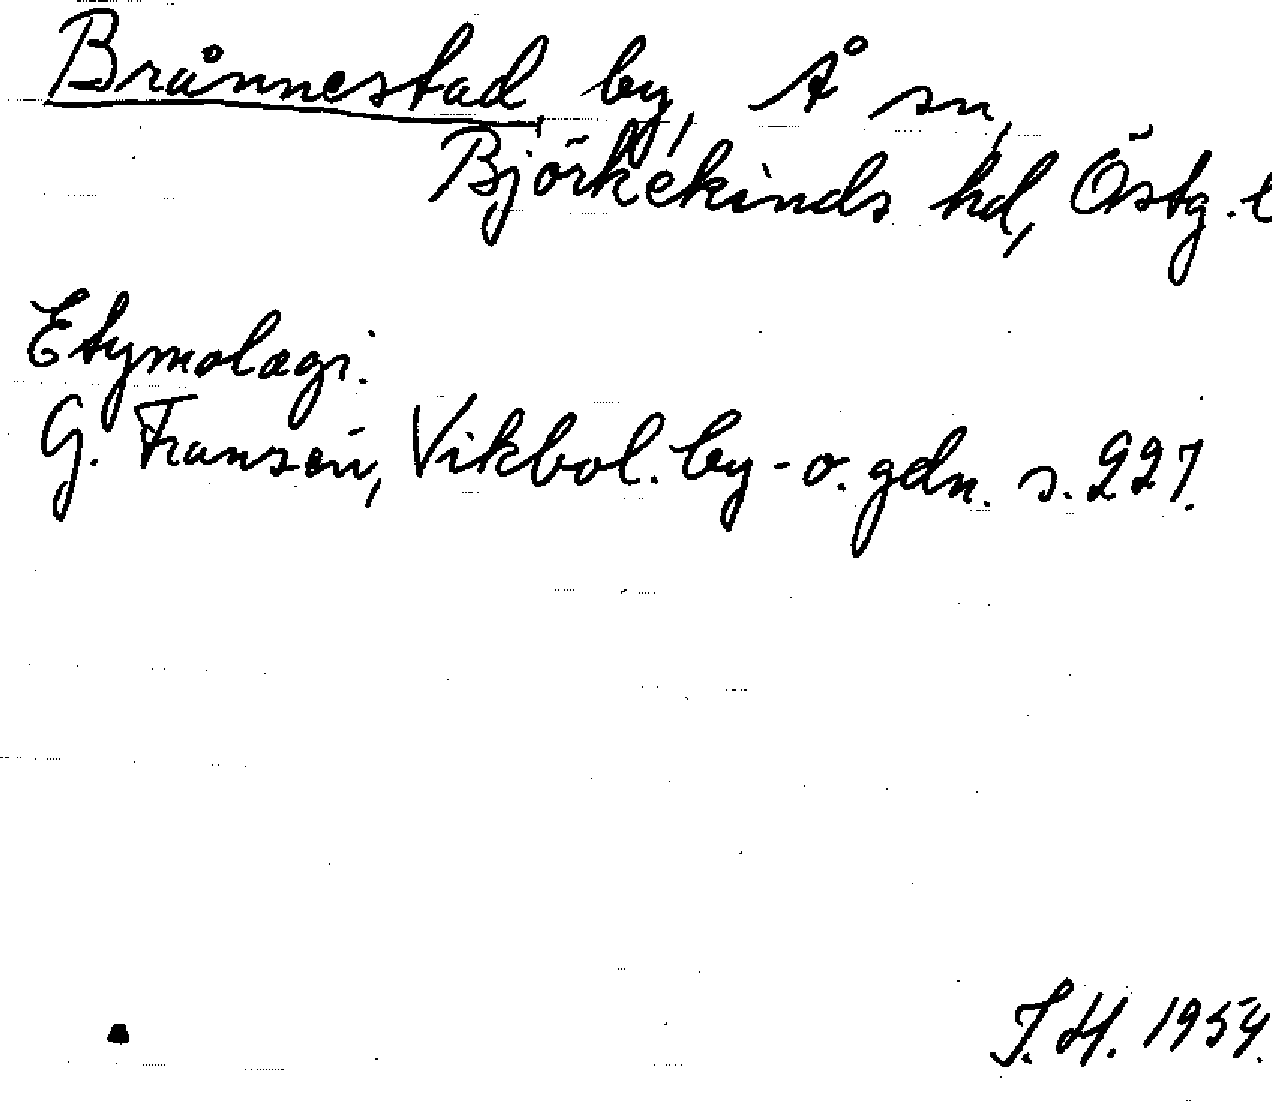 Brånnestad by, Å sn,
Björkekinds hd, Östg. l
Etymologi.
G. Fransén, Vikbol. by- o. gdn. s. 227.
J.H. 1959.